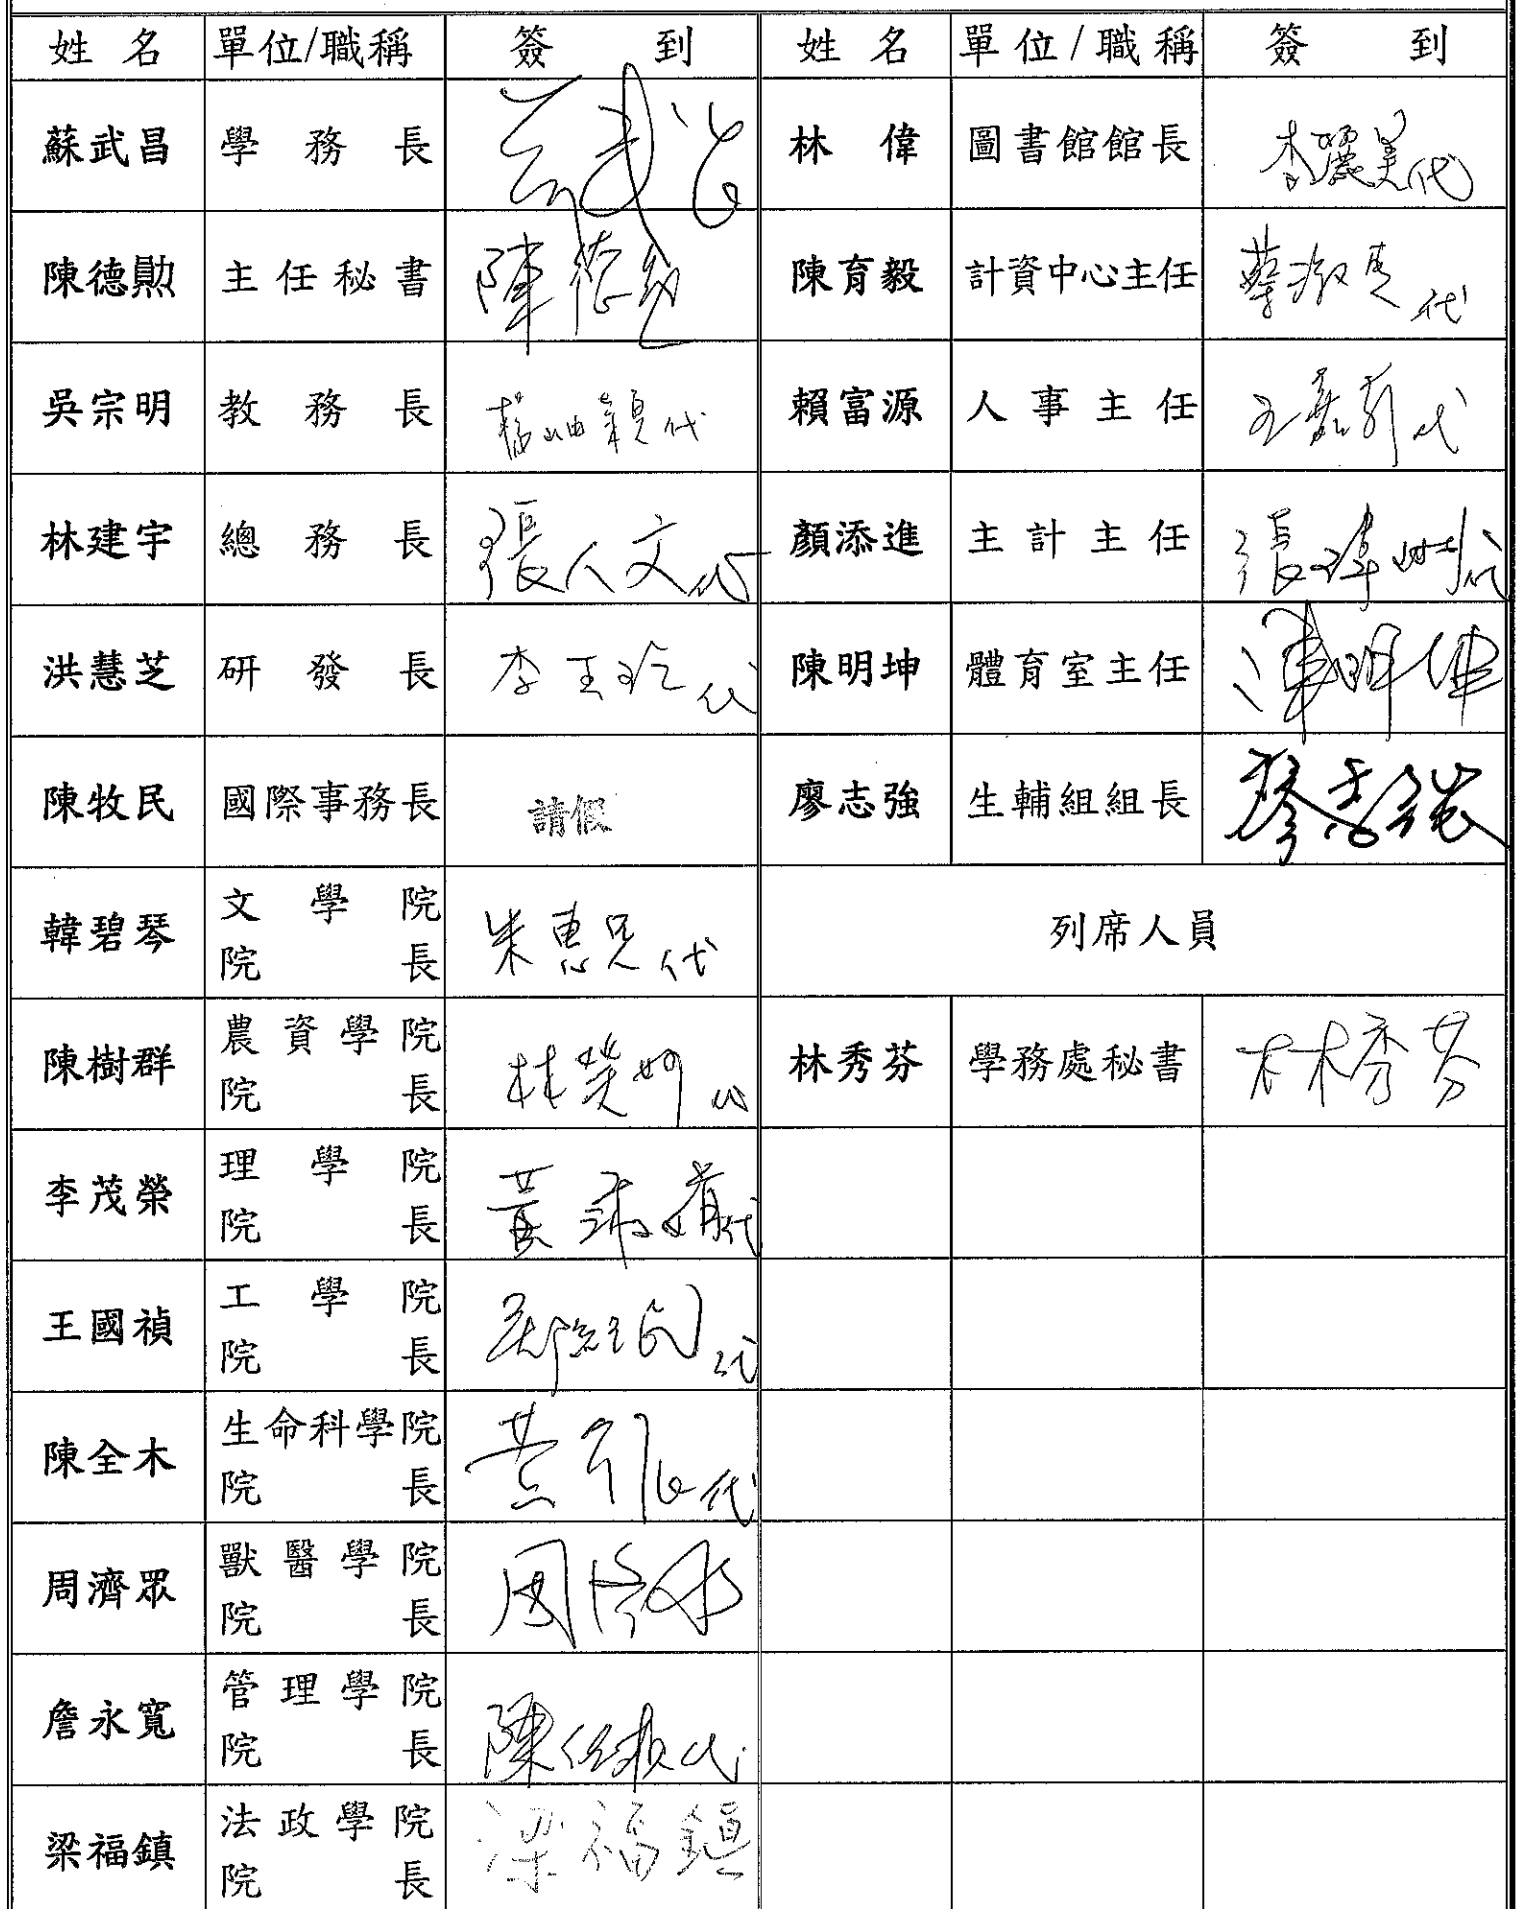 姓名 單位/職稱 簽到 姓名 單位/職稱 簽到
蘇武昌 學務長 蘇武昌 林偉 圖書館館長 李麗美代
陳德勲 主任秘書 陳德勲 陳育毅 計資中心主任 蔡淑貞代
吳宗明 教務長 代 賴富源 人事主任 代
林建宇 總務長 張人文代 顏添進 主計主任 張代
洪慧芝 研發長 李玉玲代 陳明坤 體育室主任 陳明坤
陳牧民 國際事務長 請假 廖志強 生輔組組長 廖志強
韓碧琴 文學院 朱惠 代 列席人員
院長
陳樹群 農資學院 代 林秀芬 學務處秘書 林秀芬
院長
李茂榮 理學院 黃 代
院長
王國禎 工學院 代
院長
陳全木 生命科學院 黃 代
院長
周濟眾 獸醫學院 周濟眾
院長
詹永寬 管理學院 陳 代
院長
梁福鎮 法政學院 梁福鎮
院長